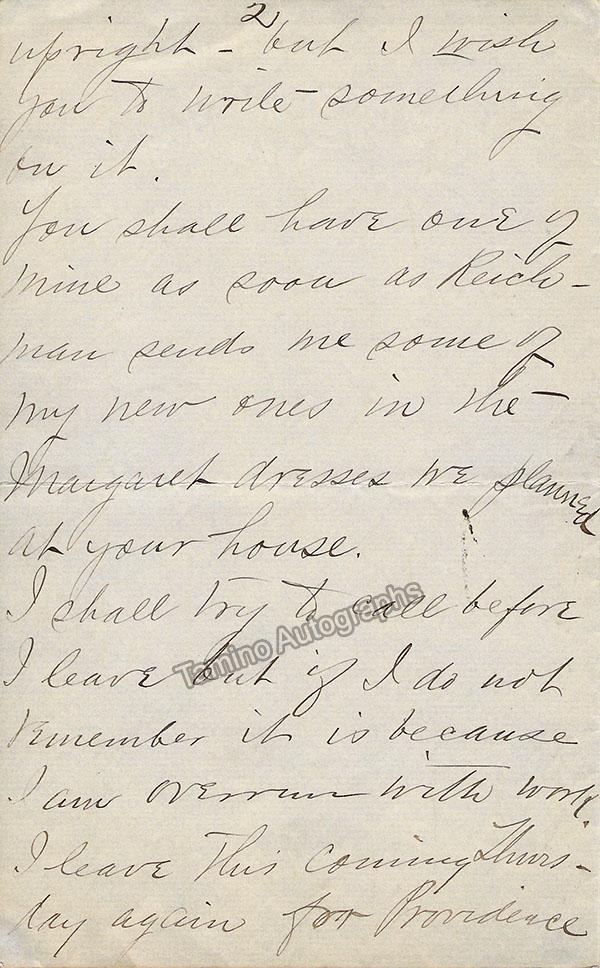 2
upright - but I wish
you to write something
on it.
You shall have one of
mine as soon as Reich-
man sends me some of
my new ones in the
Margaret dresses we planned
at your house.
I shall try to call before
I leave but if I do not
remember it is because
I am overrun with work.
I leave this coming Thurs-
day again for Providence
Tamino Autographs